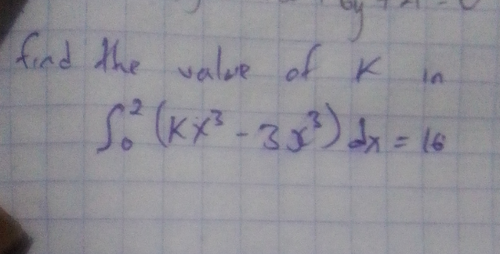 find the value of K in
∫₀² (Kx³ - 3x³) dx = 16